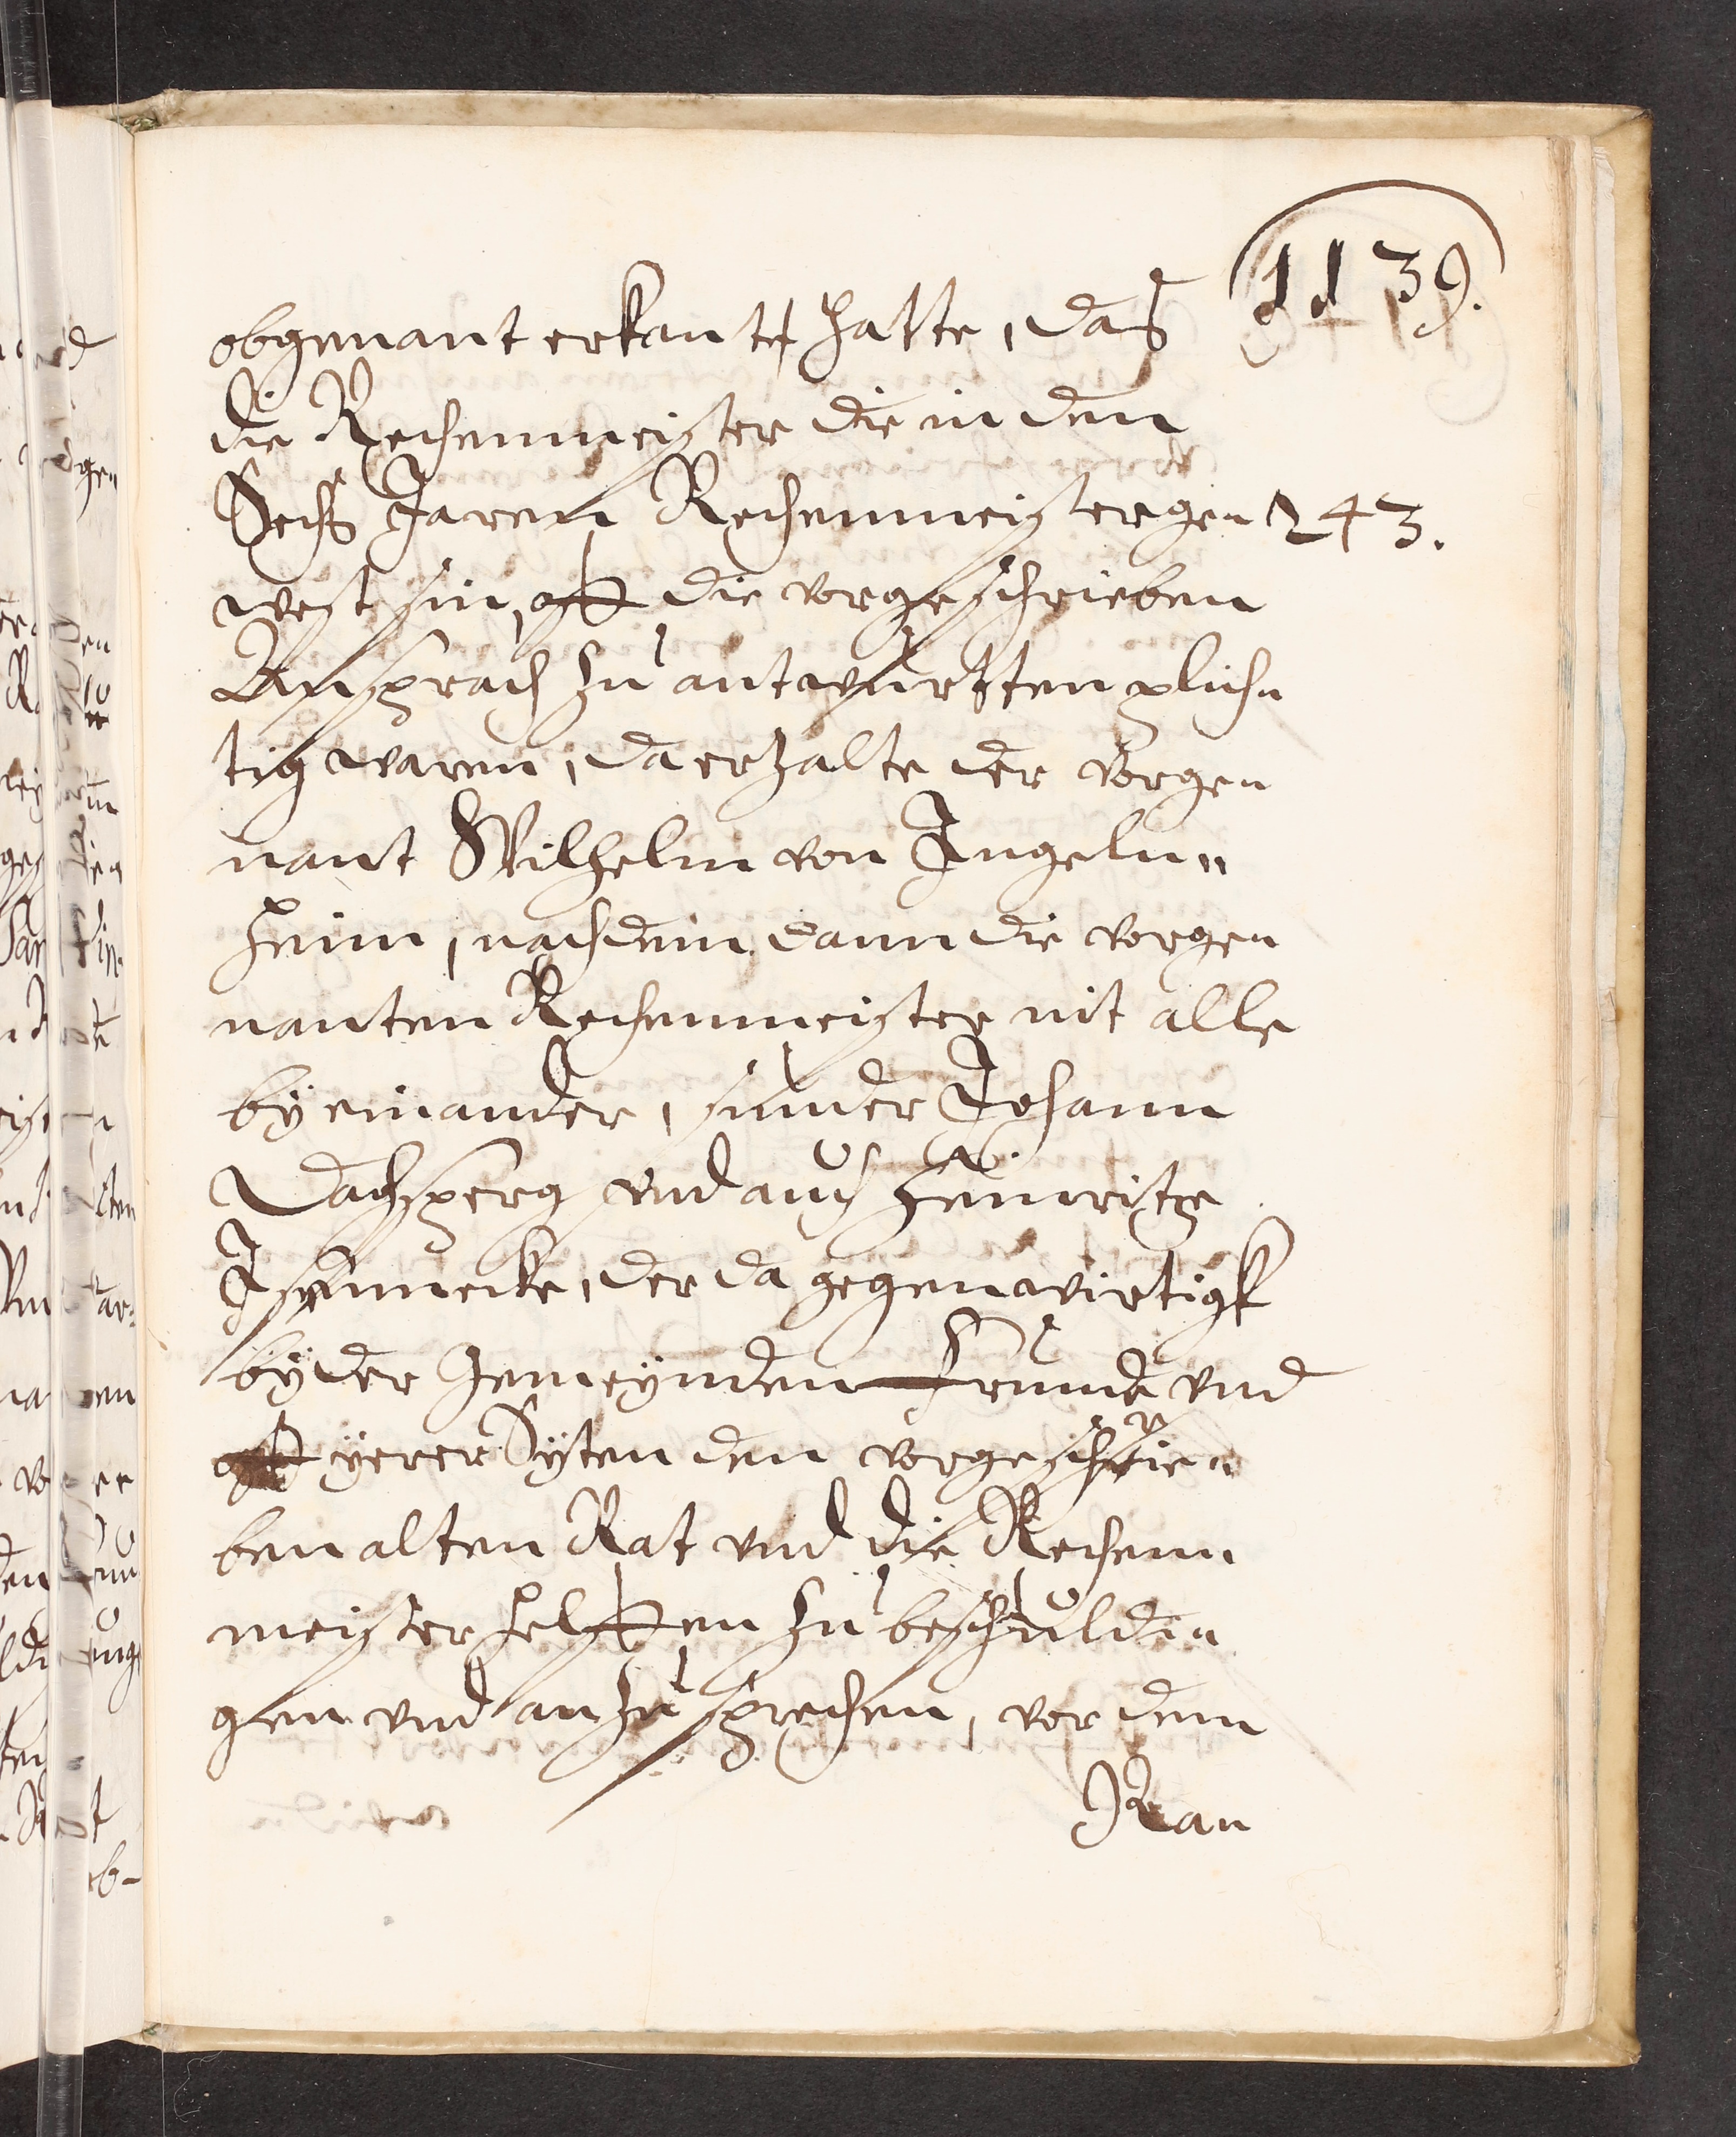 1139.
obgenant erkantt hatte, das
die Rechenmeister die in den
Sechs Jaren Rechenmeister ge„ 243.
west sin, off die vorgeschrieben
Ansprach zu antwurtten plich„
tig waren, da erzalte der vorge„
nant Wilhelm von Ingeln„
heim, nachdem dann die vorge„
nanten Rechenmeister nit alle
by einander, sunder Johann
Dachsperg vnd auch Heinritze
Isenneke, der da gegenwirtigk
by der Gemeynden Frunde vnd
off yerer Syten den vorgeschrie„
ben alten Rat vnd die Rechen„
meister helffen zu beschuldi„
gen vnd anzusprechen, vor dem
Ran